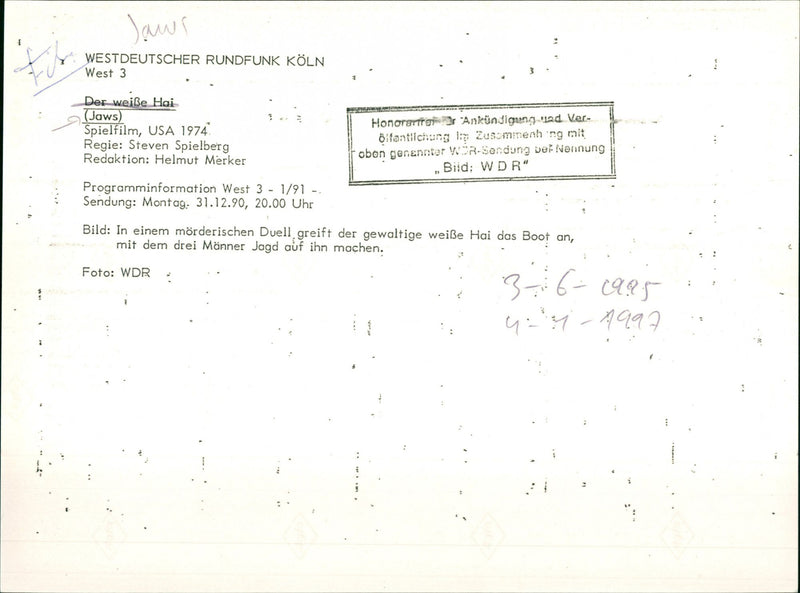 Jaws
WESTDEUTSCHER RUNDFUNK KÖLN
West 3
Der weiße Hai
(Jaws)
Spielfilm, USA 1974
Regie: Steven Spielberg
Redaktion: Helmut Merker
Programminformation West 3 - 1/91 -
Sendung: Montag, 31.12.90, 20.00 Uhr
Honorarfrei für Ankündigung und Ver-
öffentlichung im Zusammenhang mit
oben genannter WDR-Sendung bei Nennung
„Bild: WDR"
Bild: In einem mörderischen Duell greift der gewaltige weiße Hai das Boot an,
mit dem drei Männer Jagd auf ihn machen.
Foto: WDR
3-6-1995
4-1-1997